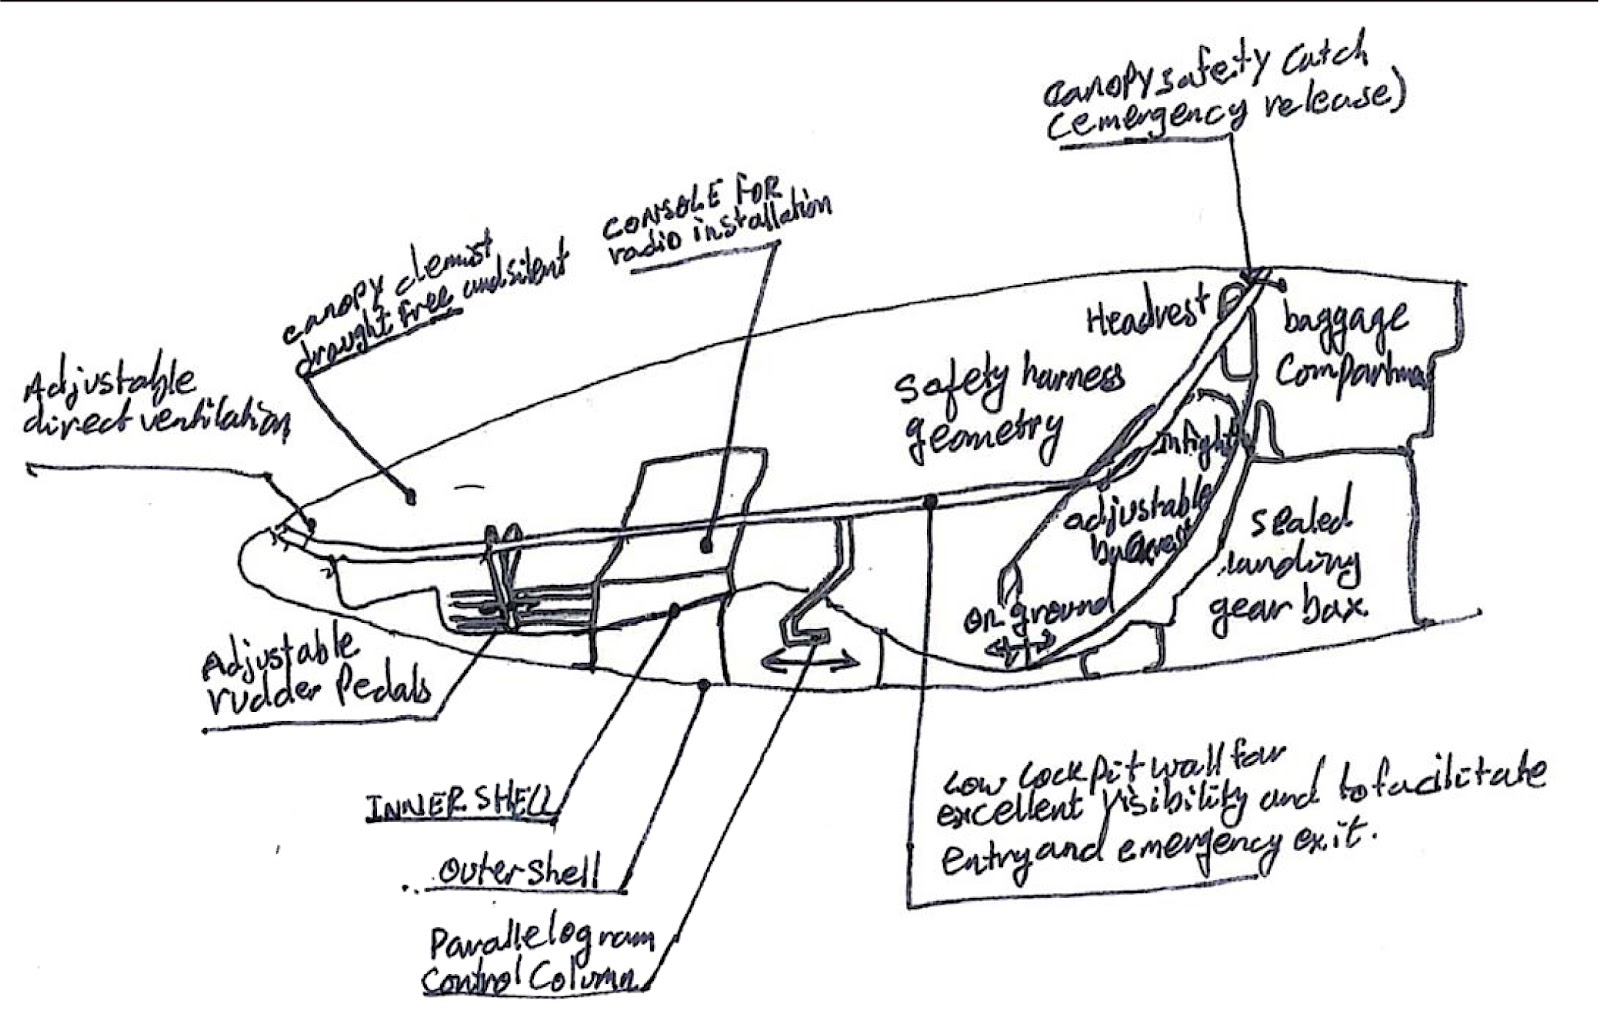 canopy safety catch
(emergency release)
CONSOLE FOR
radio installation
canopy demist
drought free and silent
Adjustable
direct ventilation
Headrest
baggage
compartment
safety harness
geometry
inflight
adjustable
backrest
on ground
sealed
landing
gear box
Adjustable
rudder Pedals
INNER SHELL
outer shell
Parallelogram
control column
Low Cockpit wall for
excellent visibility and to facilitate
entry and emergency exit.